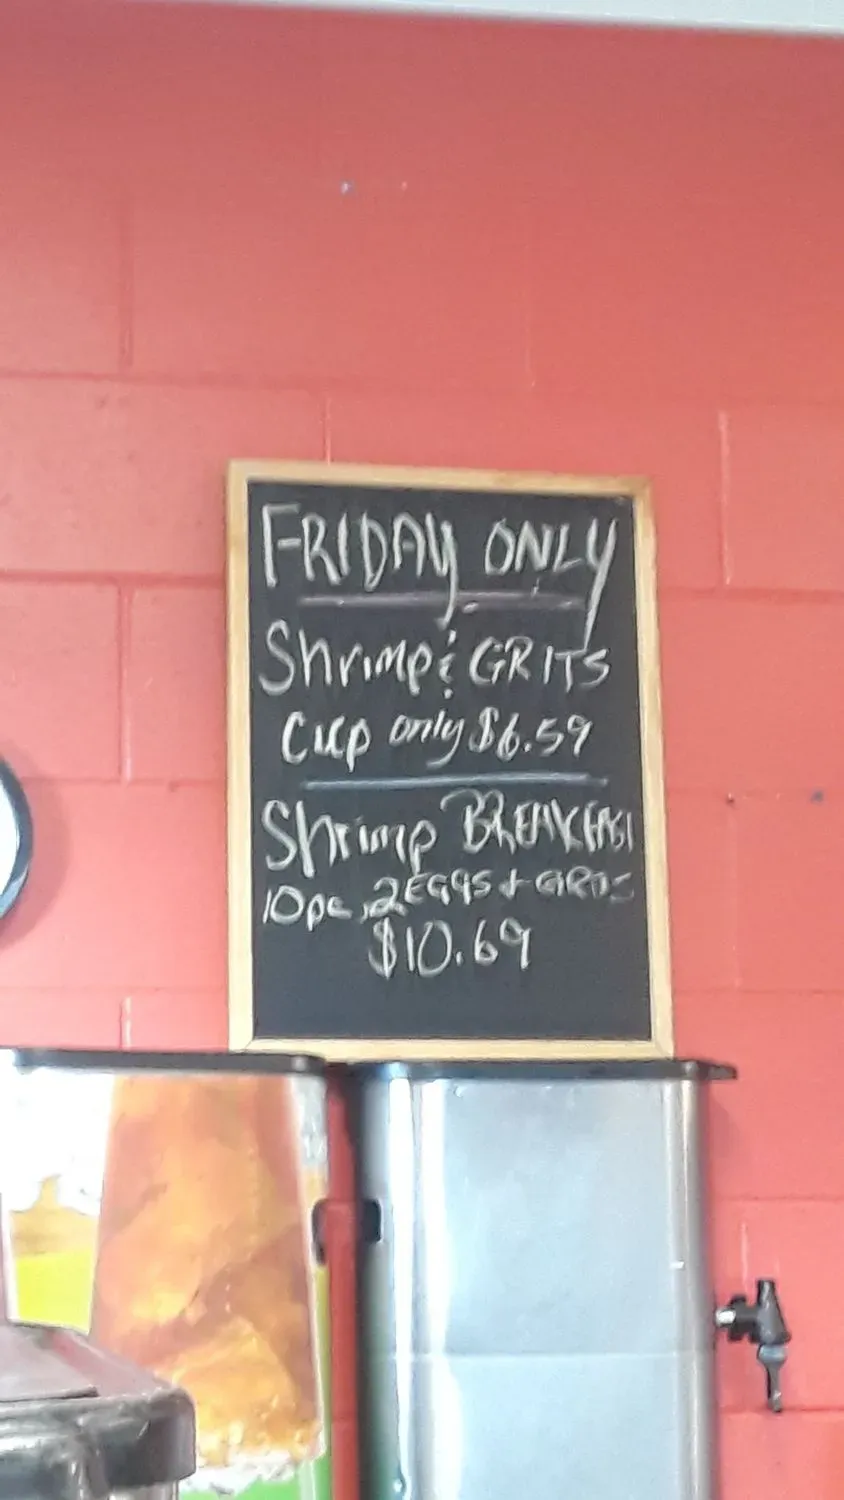 FRIDAY ONLY
Shrimp & GRITS
Cup only $6.59
Shrimp BREAKFAST
10pc, 2 EGGS + GRITS
$10.69